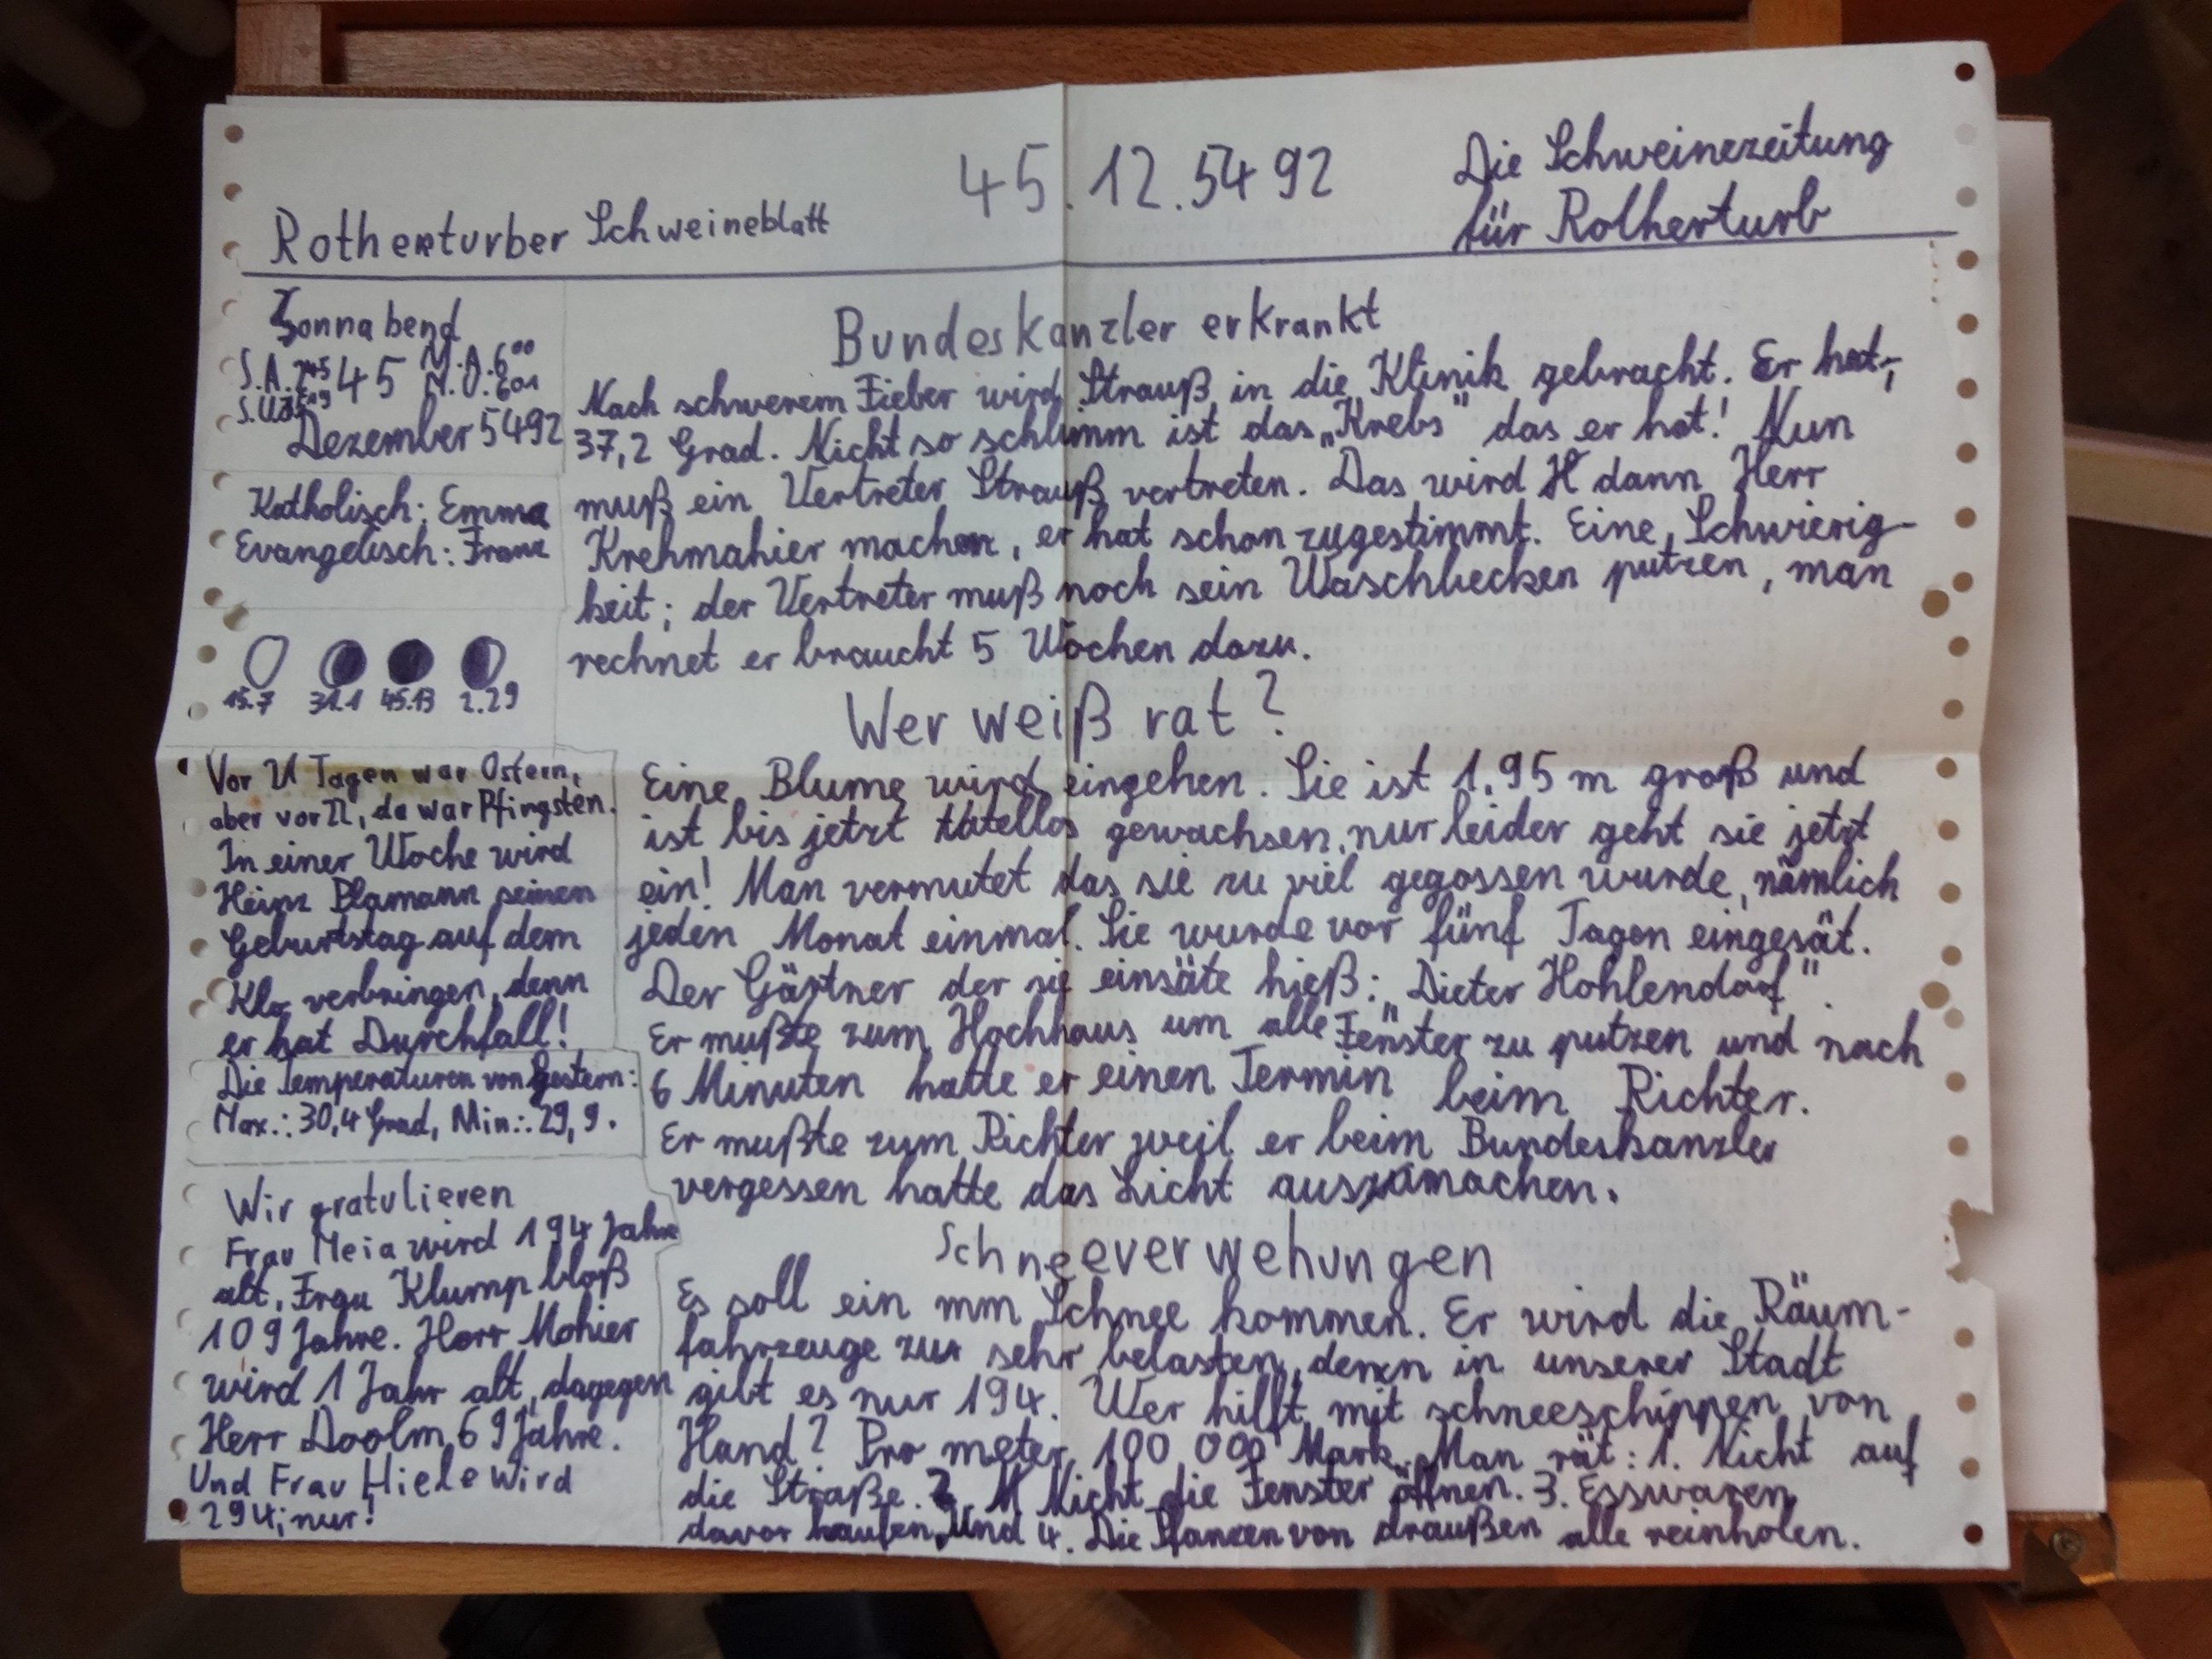 Rothenturber Schweineblatt
45.12.5492
Die Schweinezeitung
für Rotherturb
Sonnabend
S.A. 45 M.A. 6⁰⁰
S.U. M.U. 6⁰¹
Dezember 5492
Katholisch: Emma
Evangelisch: Franz
15.7 31.1 45.13 2.29
Vor 21 Tagen war Ostern,
aber vor 22, da war Pfingsten.
In einer Woche wird
Heinz Blamann seinen
Geburtstag auf dem
Klo verbringen, denn
er hat Durchfall!
Die Temperaturen von Gestern:
Max.: 30,4 Grad, Min.: 29,9.
Wir gratulieren
Frau Meia wird 194 Jahre
alt, Frau Klump bloß
109 Jahre. Herr Mohier
wird 1 Jahr alt, dagegen
Herr Doolm 69 Jahre.
Und Frau Hiele wird
294, nur!
Bundeskanzler erkrankt
Nach schwerem Fieber wird Strauß in die Klinik gebracht. Er hat
37,2 Grad. Nicht so schlimm ist das „Krebs" das er hat! Nun
muß ein Vertreter Strauß vertreten. Das wird dann Herr
Krehmahier machen, er hat schon zugestimmt. Eine Schwierig-
keit; der Vertreter muß noch sein Waschbecken putzen, man
rechnet er braucht 5 Wochen dazu.
Wer weiß rat?
Eine Blume wird eingehen. Sie ist 1,95 m groß und
ist bis jetzt tatellos gewachsen, nur leider geht sie jetzt
ein! Man vermutet das sie zu viel gegossen wurde, nämlich
jeden Monat einmal. Sie wurde vor fünf Tagen eingesät.
Der Gärtner der sie einsäte hieß: „Dieter Hohlendorf".
Er mußte zum Hochhaus um alle Fenster zu putzen und nach
6 Minuten hatte er einen Termin beim Richter.
Er mußte zum Richter weil er beim Bundeskanzler
vergessen hatte das Licht auszumachen.
Schneeverwehungen
Es soll ein mm Schnee kommen. Er wird die Räum-
fahrzeuge zur sehr belasten, denn in unserer Stadt
gibt es nur 194. Wer hilft mit schneeschippen von
Hand? Pro meter 100 000 Mark. Man rät: 1. Nicht auf
die Straße. 2. Nicht die Fenster öffnen. 3. Esswaren
davor kaufen. Und 4. Die Planzen von draußen alle reinholen.